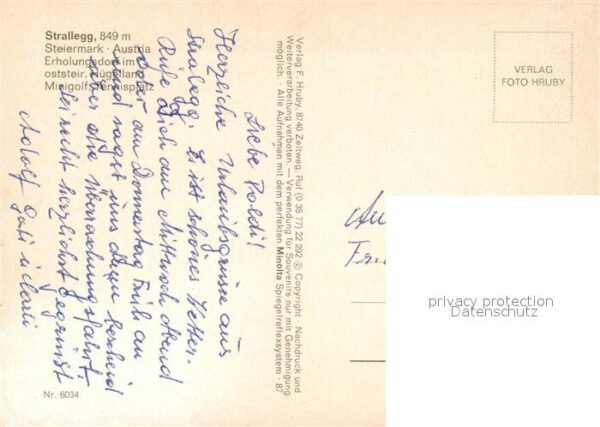 Strallegg, 849 m
Steiermark · Austria
Erholungsdorf im
oststeir. Hügelland
Minigolf, Tennisplatz
Liebe Poldi!
Herzliche Urlaubsgrüsse aus
Stralegg. Es ist schönes Wetter.
Rufe Dich am Mittwoch Abend
oder am Donnerstag Früh an
und sagst ihm dann bescheid
über die Überraschungsfahrt.
Sei recht herzlichst gegrüßt
Adolf
Nr. 6034
Verlag F. Hruby, 8740 Zeltweg, Ruf (0 35 77) 22 292 © Copyright · Nachdruck und
Weiterverarbeitung verboten — Verwendung für Souvenirs nur mit Genehmigung
möglich. · Alle Aufnahmen mit dem perfekten Minolta Spiegelreflexsystem · 87
VERLAG
FOTO HRUBY
privacy protection
Datenschutz